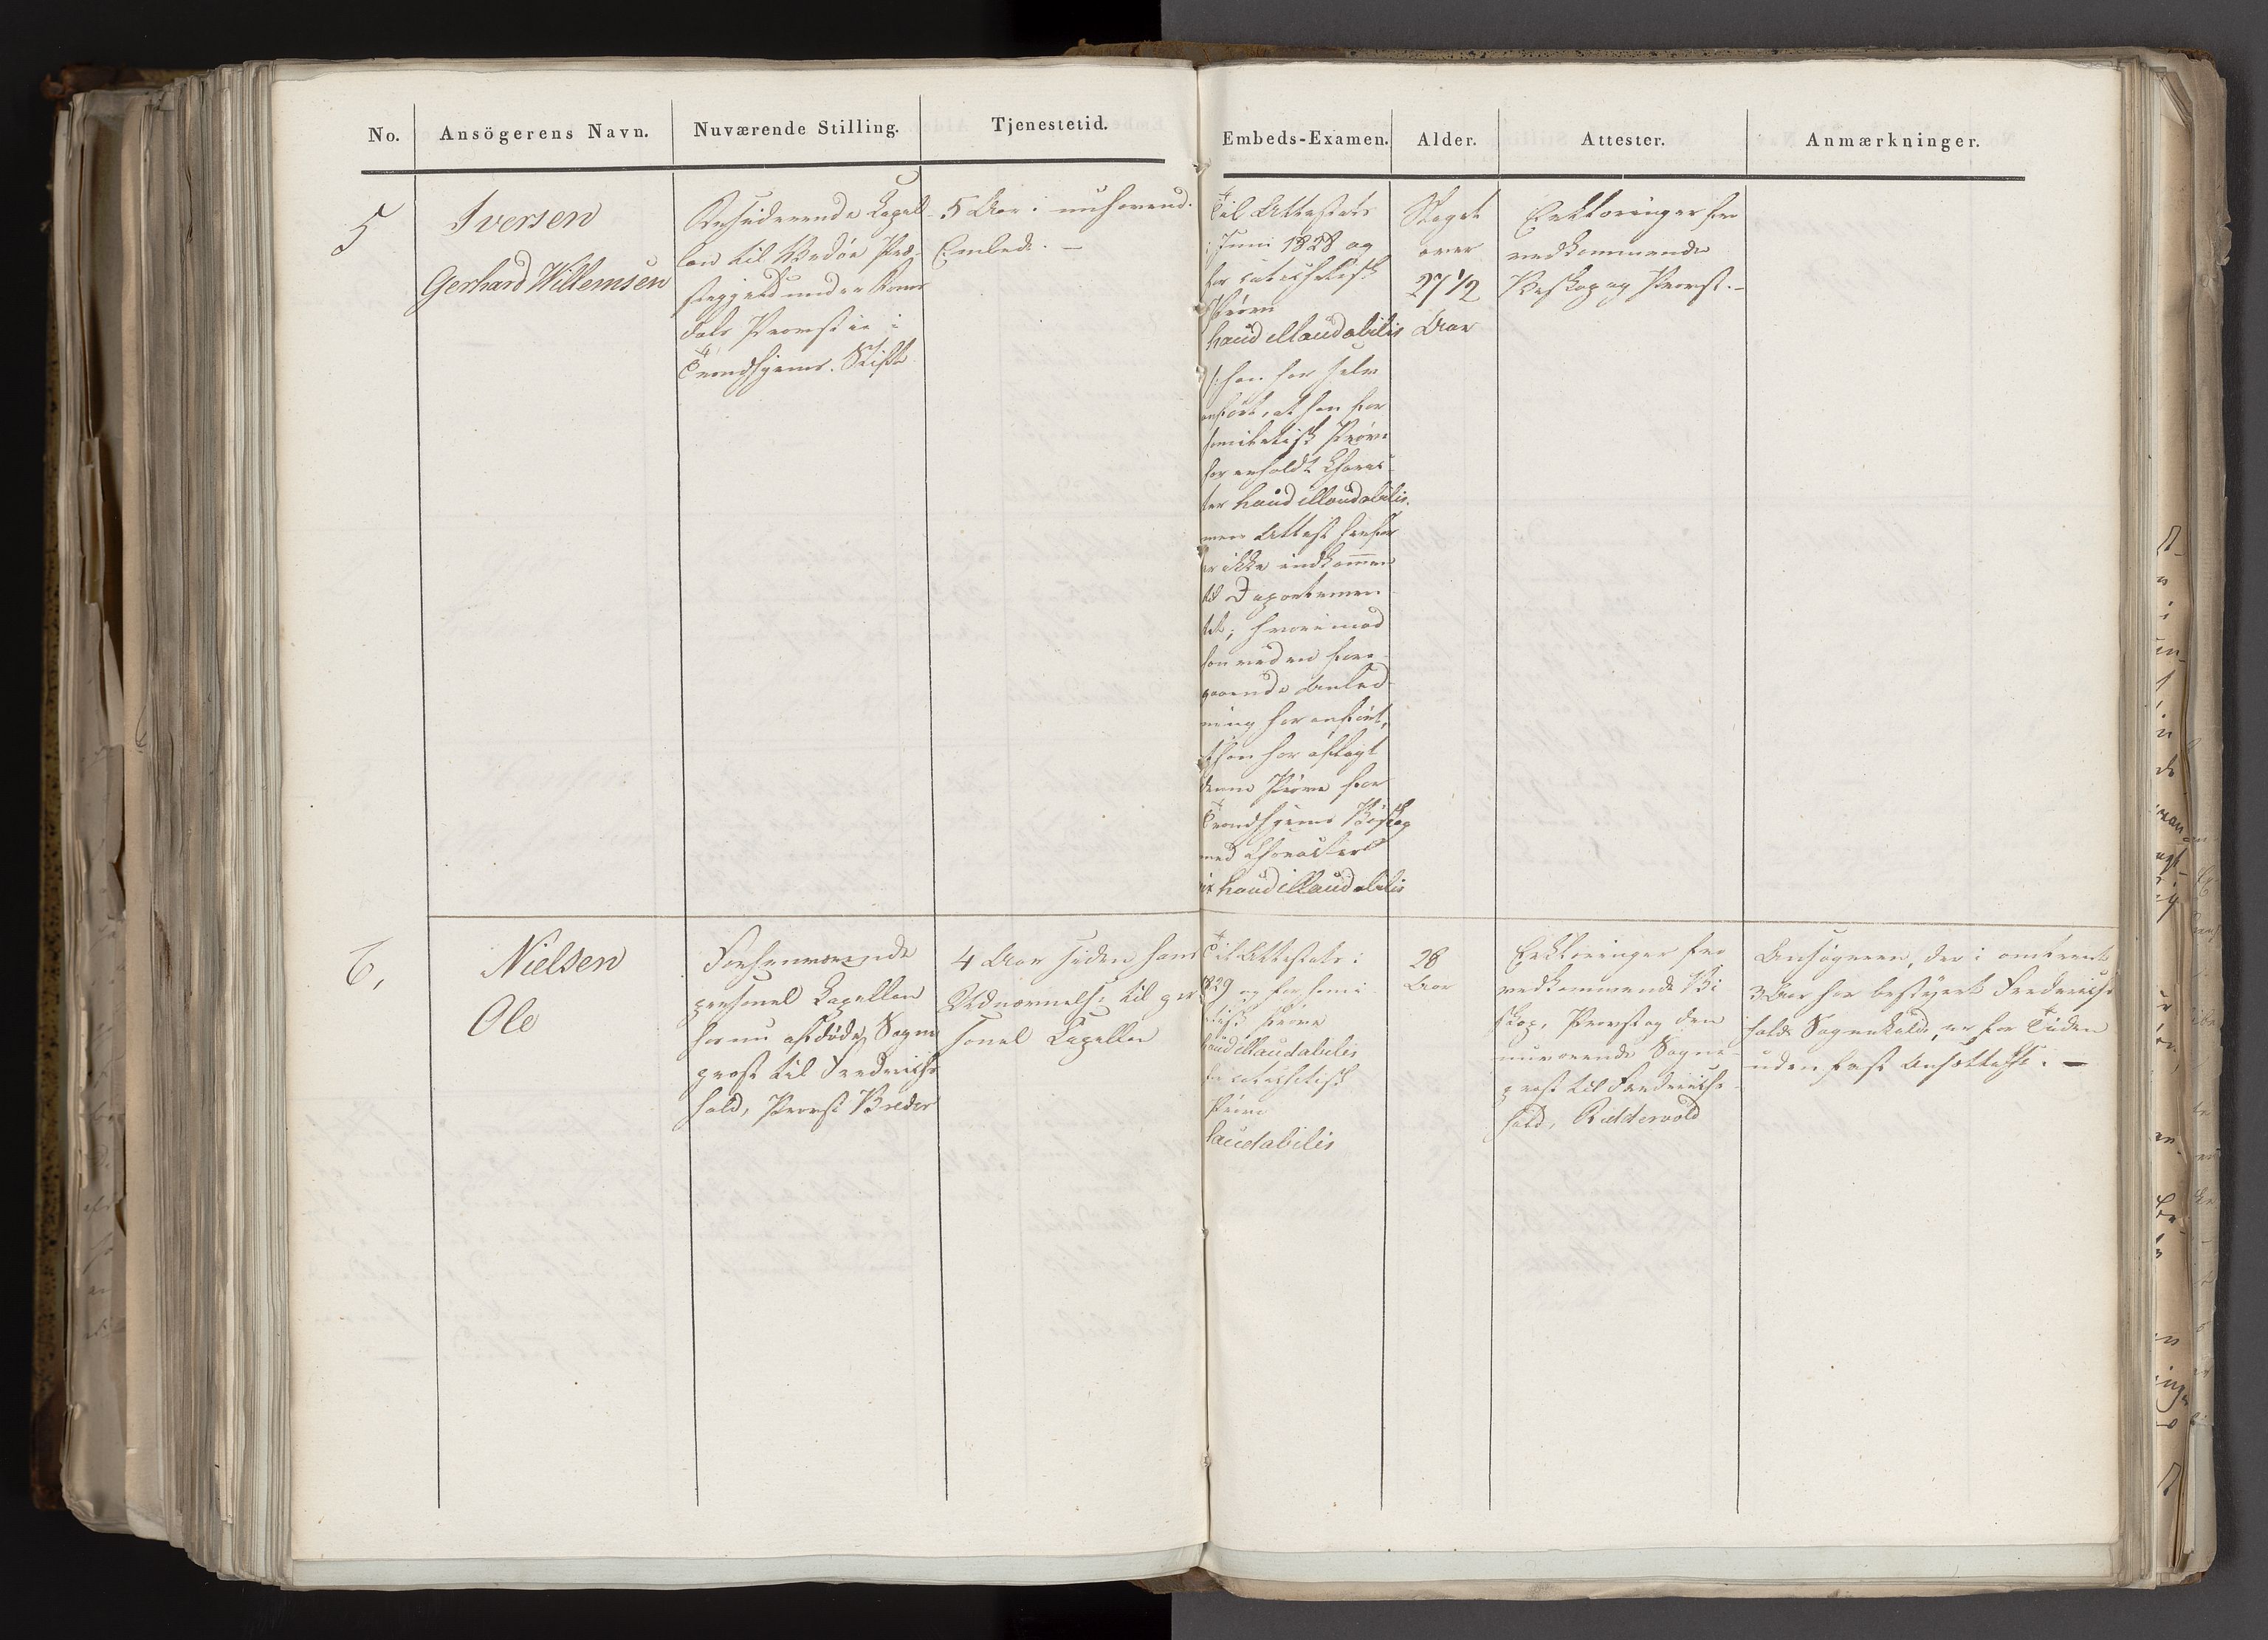 No.
Ansögerens Navn.
Nuværende Stilling.
Tjenestetid.
Embeds-Examen.
Alder.
Attester.
Anmærkninger.
5
Iversen
Gerhard Willemsen
Residerende Capel-
lan til Bodøe Præ-
stegjeld under Roms-
dals Provstie i
Trondhjems Stift
5 Aar i nuhavend.
Embede. —
Til Attestats
i Juni 1828 og
for catechetisk
Prøve
haud illaudabilis
/: han har selv
anført, at han for
homiletisk Prøve
har erholdt Charac-
ter haud illaudabilis.
men Attest herfor
er ikke indkommen
til Departemen-
tet; hvorimod
han ved en fore-
gaaende Anled-
ning har anført,
at han har aflagt
denne Prøve for
Trondhjems Biskop
med Characteer
haud illaudabilis
Steget
over
27 1/2
Aar
Erklæringer fra
vedkommende
Biskop og Provst. —
6,
Nielsen
Ole
Forhenværende
personel Capellan
hos nu afdøde Sogne-
præst til Frederichs-
hald, Provst Breder
4 Aar siden hans
Udnævnelse til per-
sonel Capellan
Til Attestats i
1829 og for homi-
letisk Prøve
haud illaudabilis
for catechetisk
Prøve
laudabilis
28
Aar
Erklæringer fra
vedkommende Bi-
skop, Provst og den
nuværende Sogne-
præst til Frederichs-
hald, Riddervold
Ansøgeren, der i omtrent
3 Aar har bestyret Frederichs-
halds Sognekald, er for Tiden
uden fast Ansættelse. —